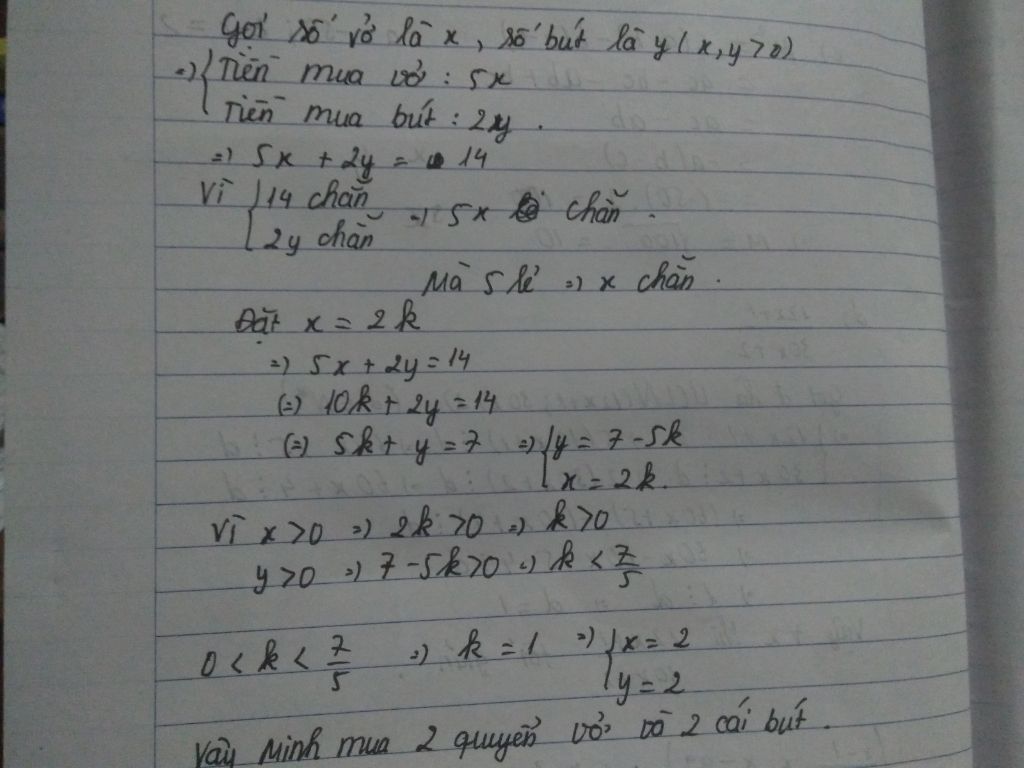 Gọi số vở là x, số bút là y (x, y > 0)
=) { Tiền mua vở : 5x
Tiền mua bút : 2y .
=) 5x + 2y = 14
Vì { 14 chẵn
2y chẵn =) 5x chẵn .
Mà 5 lẻ =) x chẵn .
Đặt x = 2k
=) 5x + 2y = 14
(=) 10k + 2y = 14
(=) 5k + y = 7 =) { y = 7 - 5k
x = 2k .
Vì x > 0 =) 2k > 0 =) k > 0
y > 0 =) 7 - 5k > 0 =) k < 7/5
0 < k < 7/5 =) k = 1 =) { x = 2
y = 2
Vậy Minh mua 2 quyển vở và 2 cái bút .